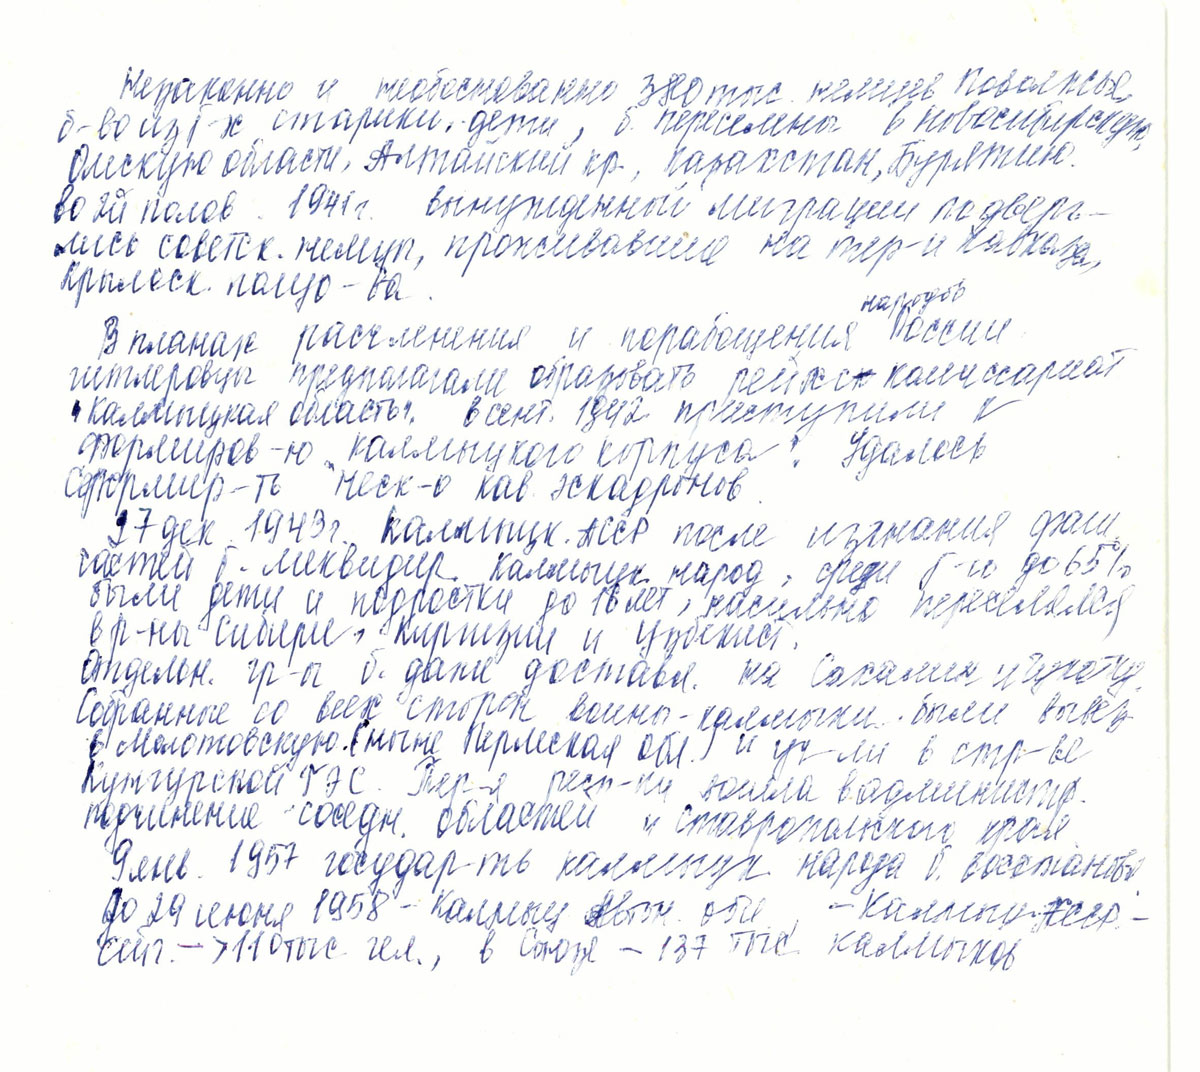 Незаконно и необоснованно 380 тыс. немцев Поволжья,
б-во из к-х старики, дети, б. переселены в Новосибирскую,
Омскую области, Алтайский кр., Казахстан, Бурятию.
Во 2й полов. 1941 г. вынужденный миграции подверг-
лись советск. немцы, проживавшие на тер-и Кавказа,
Крымск. полуо-ва.
народов
В планах расчленения и порабощения России
гитлеровцы предполагали образовать рейхскомиссариат
"Калмыцкая область". В сент. 1942 приступили к
формиров-ю "калмыцкого корпуса". Удалось
сформир-ть неск-о кав. эскадронов.
27 дек. 1943 г. Калмыцк. АССР после изгнания фаши
б. ликвидир. Калмыцк. народ, среди к-го до 65%
были дети и подростки до 16 лет, насильно переселялся
в р-ны Сибири, Киргизии и Узбекист.
Отдельн. гр-ы б. даже доставл. на Сахалин и Чукотку.
Собранные со всех сторон воины-калмыки были вывез
в Молотовскую (ныне Пермская обл.) и уч-ли в стр-ве
ГЭС. Тер-я респ-ки вошла в администр.
подчинение соседн. областей и Ставропольского края.
9 янв. 1957 государ-ть калмыцк народа б. восстановл
До 29 июня 1958 - Калмыц Автон. обл, - Калмыц. АССР -
сейч. - >110 тыс чел., в Союзе - 137 тыс калмыков